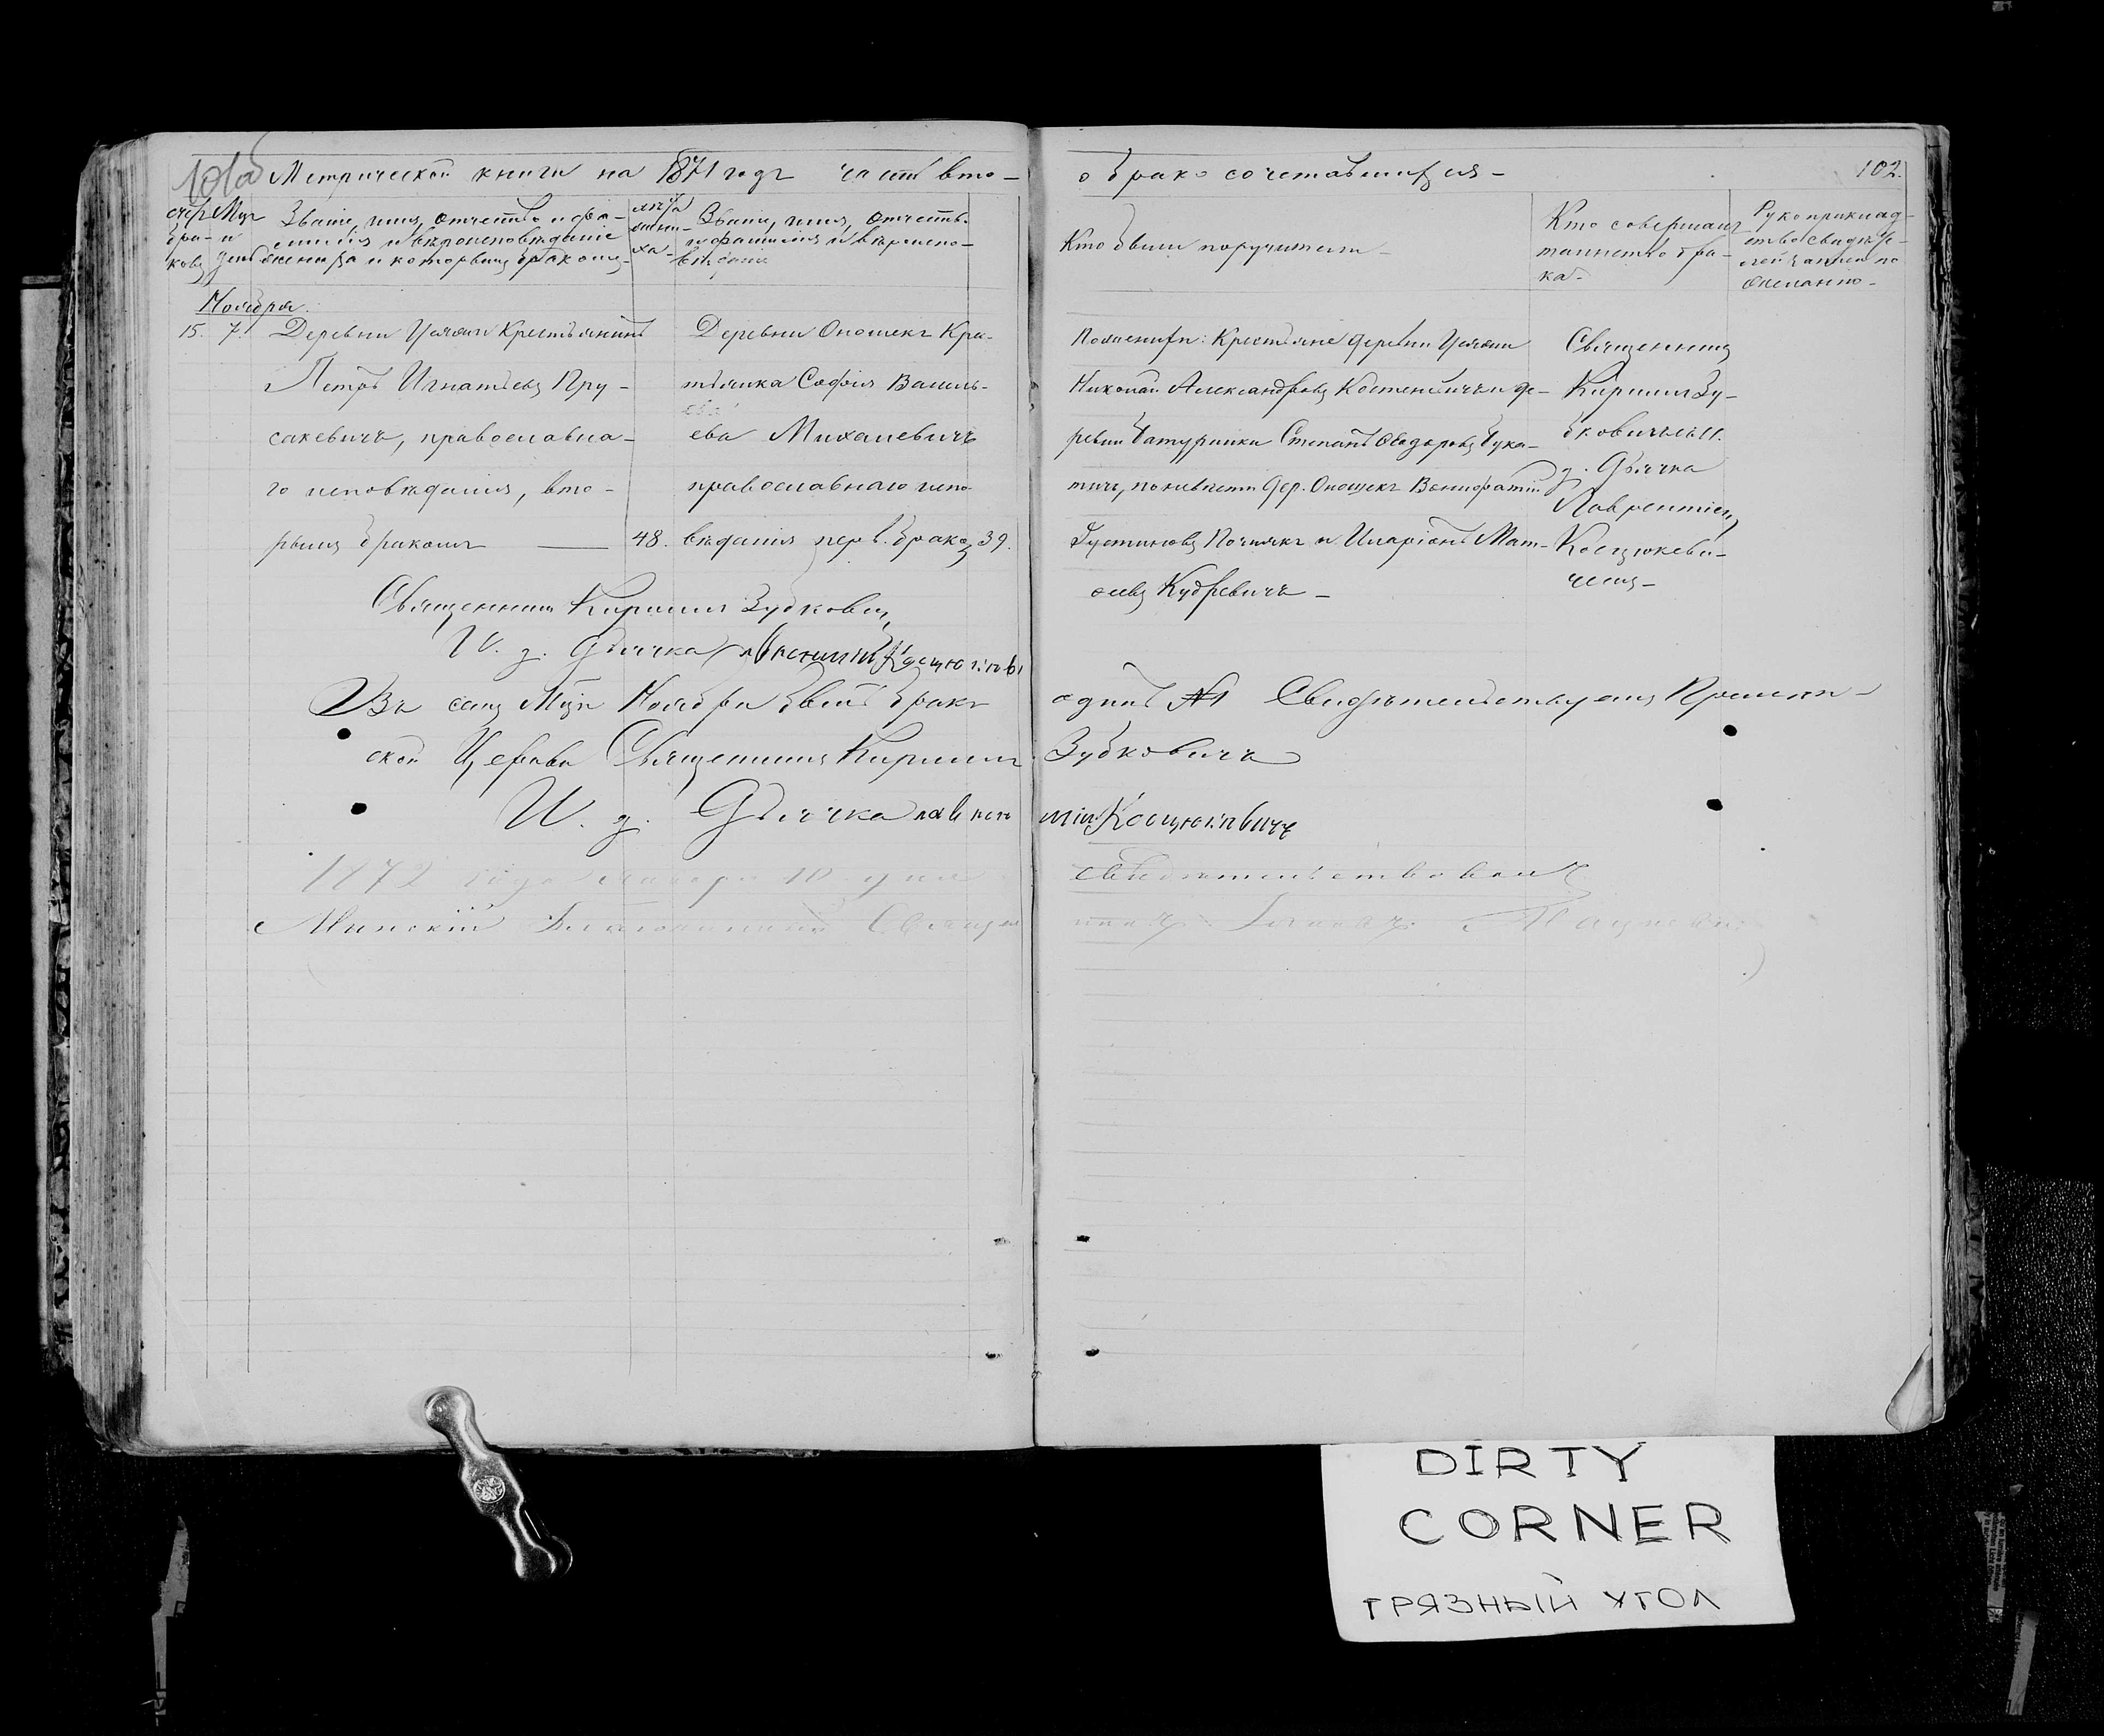 101об
Метрической книги на 1871 годъ часть вто-
о бракосочетавшихся -
102.
Счетъ бра-ковъ
Мцъ и день
Званіе, имя, отчество и фа-
милія и вѣроисповѣданіе
жениха и которымъ бракомъ-
лѣта
жени-
ха-
Званіе, имя, отчеств.
и фамилія и вѣроиспо-
вѣданіе
Кто были поручители -
Кто совершалъ
таинство бра-
ка-
Рукоприклад-
ство свидѣте-
лей записи по
желанію-
Ноября
15. 7. Деревни Крестьянинъ
Петръ Игнатьевъ Пру-
сакевичъ, православна-
го исповѣданія, вто-
рымъ бракомъ — 48.
Деревни Оношекъ Кре-
стьянка Софія Василь-
ева Михалевичъ
православнаго испо-
вѣданія перв. бракомъ 39.
По женихѣ: Крестьяне деревни
Николай Александровъ и де-
ревни Батуринки Степанъ Ѳеодоровъ Бука-
тичъ, по невѣстѣ дер. Оношекъ Вонифатій
Іустиновъ и Иларіонъ Мат-
ѳеевъ Кудревичъ -
Священникъ
Кириллъ Зу-
бковичъ съ И.
д. Дьячка
Лаврентіемъ
Косцюкеви-
чемъ-
Священникъ Кириллъ Зубковичъ
И. д. Дьячка Лаврентій Косцюкевичъ
Въ семъ Мцѣ Ноябрѣ бысть бракъ одинъ №1 Свидѣтельствуемъ
ской Церкви Священникъ Кириллъ Зубковичъ
И. д. Дьячка Лаврентій Косцюкевичъ
1872 года Января 10 дня свидѣтельствовалъ
Минскій Благочинный Священникъ
DIRTY
CORNER
ГРЯЗНЫЙ УГОЛ